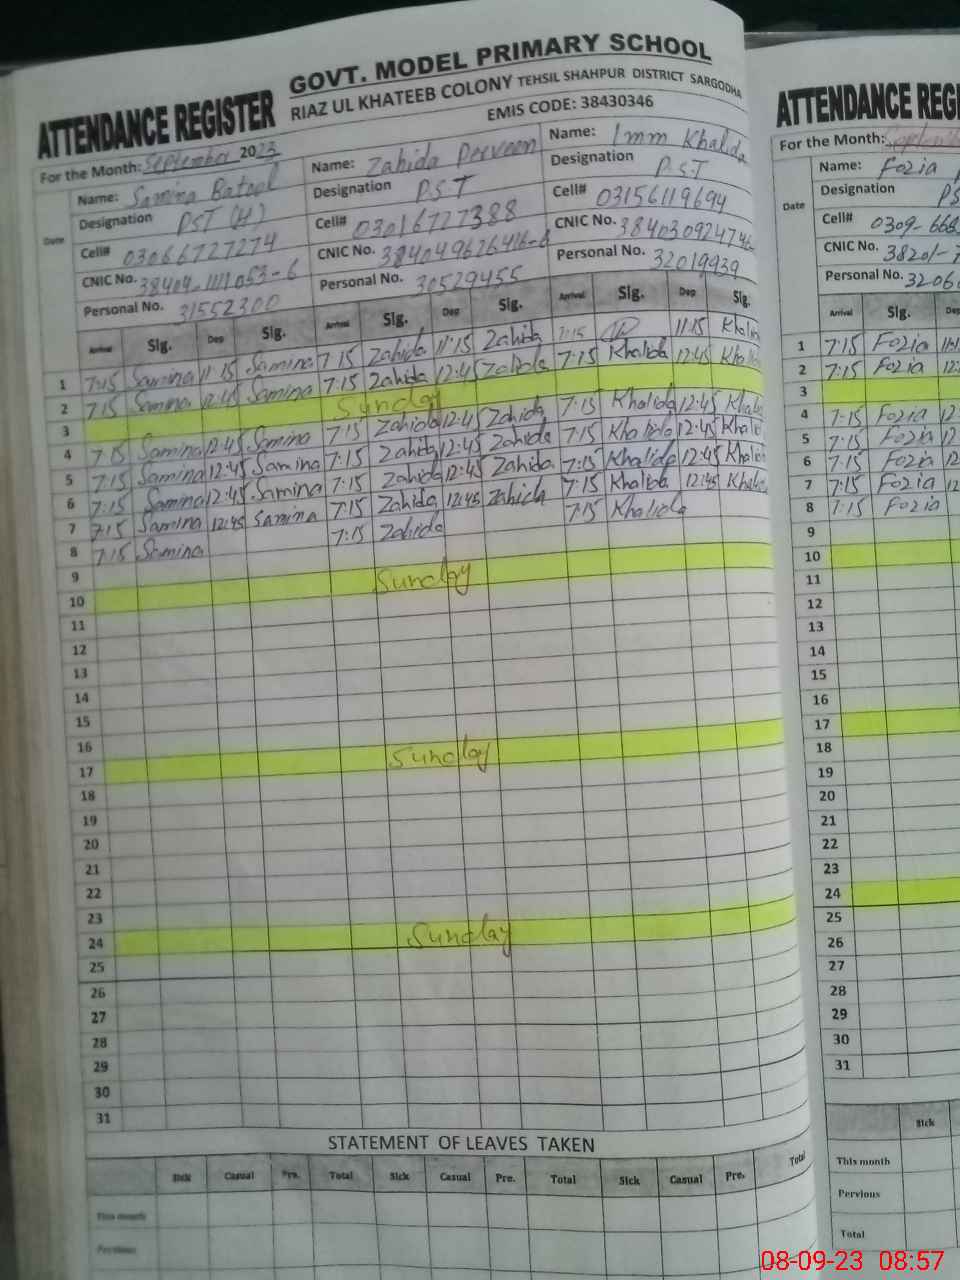 GOVT. MODEL PRIMARY SCHOOL
ATTENDANCE REGISTER RIAZ UL KHATEEB COLONY TEHSIL SHAHPUR DISTRICT SARGODHA
EMIS CODE: 38430346
For the Month: September 2023
Name: Samina Batool Name: Zahida Perveen Name: Imm Khalida
Designation PST (H) Designation P.S.T Designation P.S.T
Date
Cell# 03066727274 Cell# 03016727388 Cell# 03156119694
CNIC No. 38404-1111053-6 CNIC No. CNIC No.
Personal No. 31552300 Personal No. 30529455 Personal No. 32019939
Arrival Sig. Dep Sig. Arrival Sig. Dep Sig. Arrival Sig. Dep Sig.
1 7:15 Samina 11:15 Samina 7:15 Zahida 11:15 Zahida 7:15 11:15
2 7:15 Samina 12:45 Samina 7:15 Zahida 12:45 Zahida 7:15 Khalida 12:45
3 Sunday
4 7:15 Samina 12:45 Samina 7:15 Zahida 12:45 Zahida 7:15 Khalida 12:45
5 7:15 Samina 12:45 Samina 7:15 Zahida 12:45 Zahida 7:15 Khalida 12:45
6 7:15 Samina 12:45 Samina 7:15 Zahida 12:45 Zahida 7:15 Khalida 12:45
7 7:15 Samina 12:45 Samina 7:15 Zahida 12:45 Zahida 7:15 Khalida 12:45
8 7:15 Samina 7:15 Zahida 7:15 Khalida
9
10 Sunday
11
12
13
14
15
16
17 Sunday
18
19
20
21
22
23
24 Sunday
25
26
27
28
29
30
31
STATEMENT OF LEAVES TAKEN
Sick Casual Pre. Total Sick Casual Pre. Total Sick Casual Pre. Total
This month
Pervious
ATTENDANCE REG
For the Month: September
Name: Fozia
Designation PS
Date
Cell# 0309-666
CNIC No. 38201-
Personal No. 3206
Arrival Sig. Dep
1 7:15 Fozia
2 7:15 Fozia 12:
3
4 7:15 Fozia 12
5 7:15 Fozia 12
6 7:15 Fozia
7 7:15 Fozia 12
8 7:15 Fozia
9
10
11
12
13
14
15
16
17
18
19
20
21
22
23
24
25
26
27
28
29
30
31
Sick
This month
Pervious
Total
08-09-23 08:57